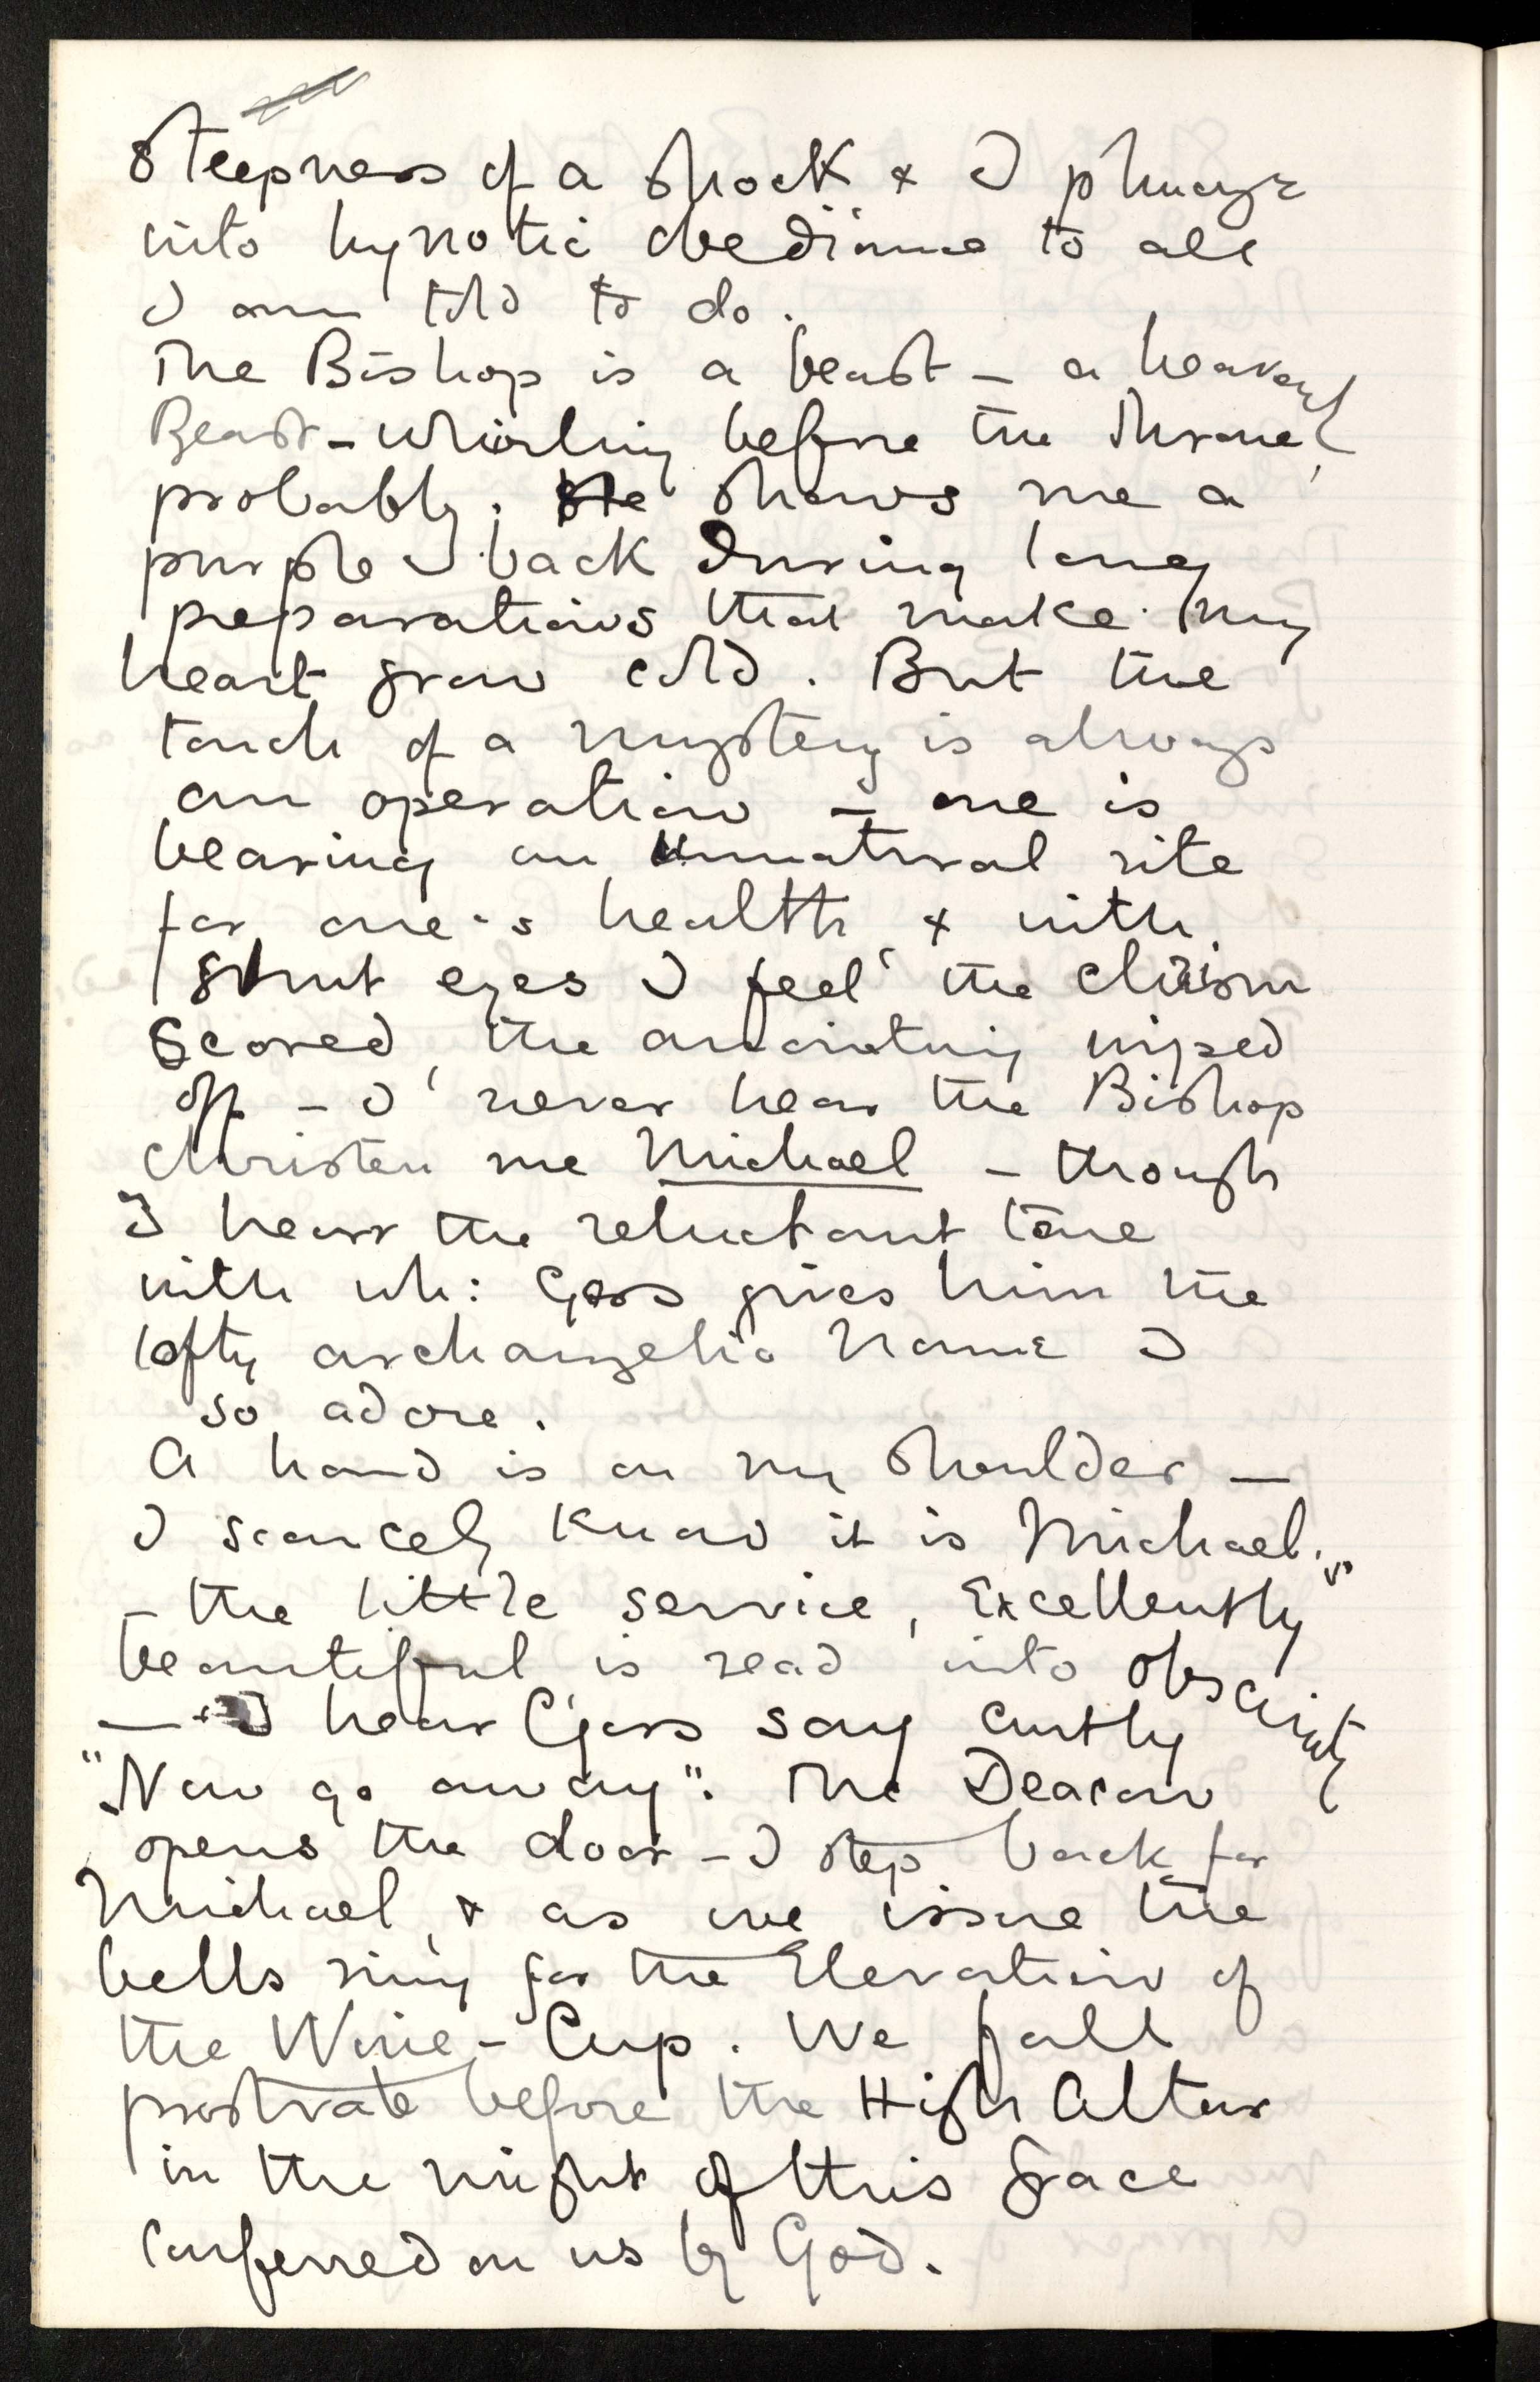 Steepness of a shock & I plunge
into hypnotic obedience to all
I am told to do.
The Bishop is a beast – a heavenly
Beast – whirling before the Throne,
probably. He shows me a
purpled back during long
preparations that make my
heart grow cold. But the
touch of a mystery is always
an operation – one is
bearing an unnatural rite
for one's health, & with
shut eyes I feel the chrism
scored, the anointing wiped
off – I never hear the Bishop
christen me Michael – though
I hear the reluctant tone
with wh: Goss gives him the
lofty archangelic name I
so adore.
A hand is on my shoulder –
I scarcely know it is Michael's
– the little service, excellently
beautiful is read into obscurity
– I hear Goss say curtly
"Now go away". The Deacon
opens the door – I step back for
Michael, & as we issue the
bells ring for the Elevation of
the Wine-Cup. We fall
prostrate before the High Altar
in the might of this Grace
conferred on us by God.